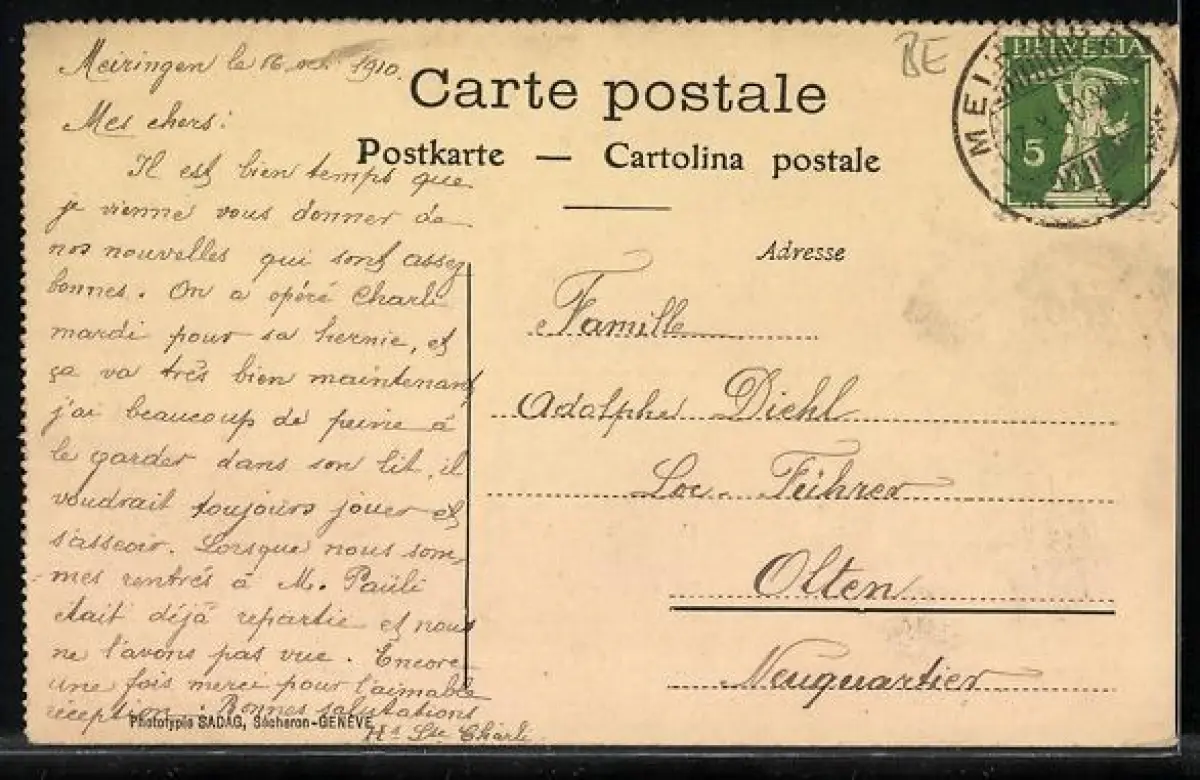 Meiringen le 16 1910.
Mes chers:
Il est bien temps que
je vienne vous donner de
nos nouvelles qui sont assez
bonnes. On a opéré Charli
mardi pour sa hernie, et
ça va très bien maintenant,
j'ai beaucoup de peine à
le garder dans son lit, il
voudrait toujours jouer et
s'asseoir. Lorsque nous som-
mes rentrés à M. Paüli
était déjà repartie et nous
ne l'avons pas vue. Encore
une fois merci pour l'aimable
réception. Bonnes salutations
Charli
Phototypie SADAG, Sécheron-GENÈVE
Carte postale
Postkarte — Cartolina postale
BE
HELVETIA
5
Adresse
Famille
Adolphe Diehl
Loc. Führer
Olten
Neuquartier